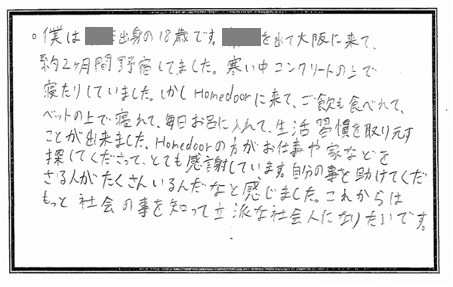 。僕は 出身の18歳です。 を出て大阪に来て、
約2ヶ月間野宿してました。寒い中コンクリートの上で
寝たりしていました。しかしHomedoorに来て、ご飯も食べれて、
ベットの上で寝れて、毎日お風呂に入れて、生活習慣を取り元す
ことが出来ました。Homedoorの方がお仕事や家などを
探してくださって、とても感謝しています。自分の事を助けてくだ
さる人がたくさんいるんだなと感じました。これからは
もっと社会の事を知って立派な社会人になりたいです。